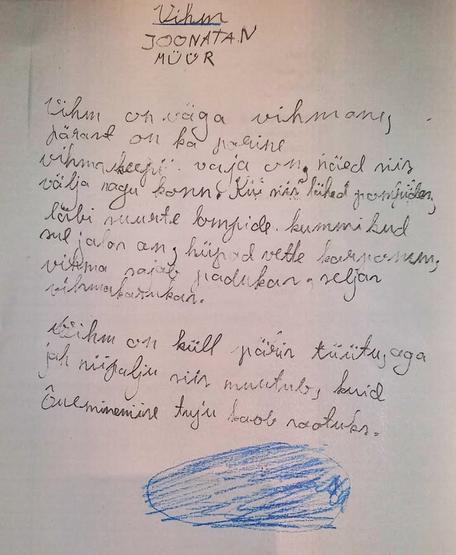 Vihm
JOONATAN
MÜÜR
Vihm on väga vihmane,
pärast on ka porine
vihmakeepi vaja on, näed siis
välja nagu konn. Kui siis lähed
läbi suurte lompide. kummikud
sul jalas on, hüpad vette karponn,
vihma sajab padukas, seljas
vihmakasukas.
Vihm on küll päris tüütu, aga
jah niipalju siis muutub, kuid
Õue minemise tuju kaob raotuks.